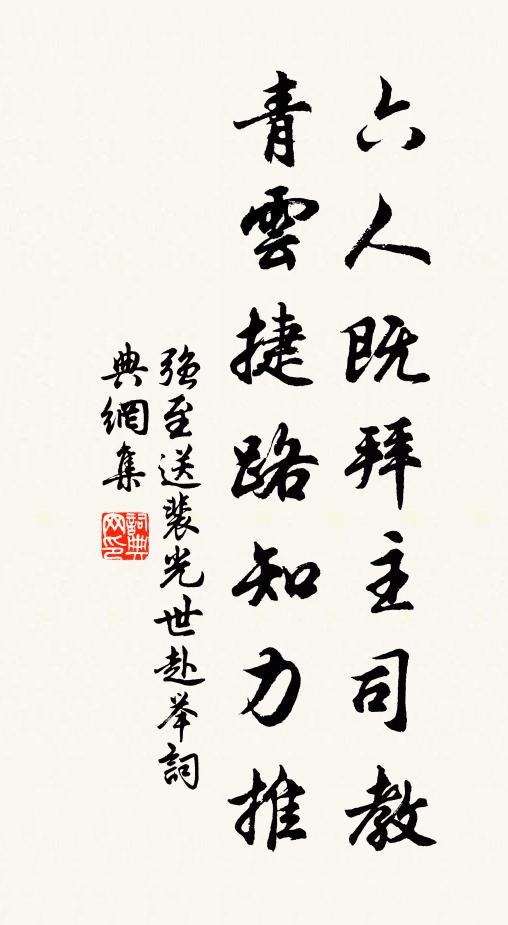 六人既拜主司教
青雲捷路知力推
強至送裴光世赴举詞
典網集
詞典网印